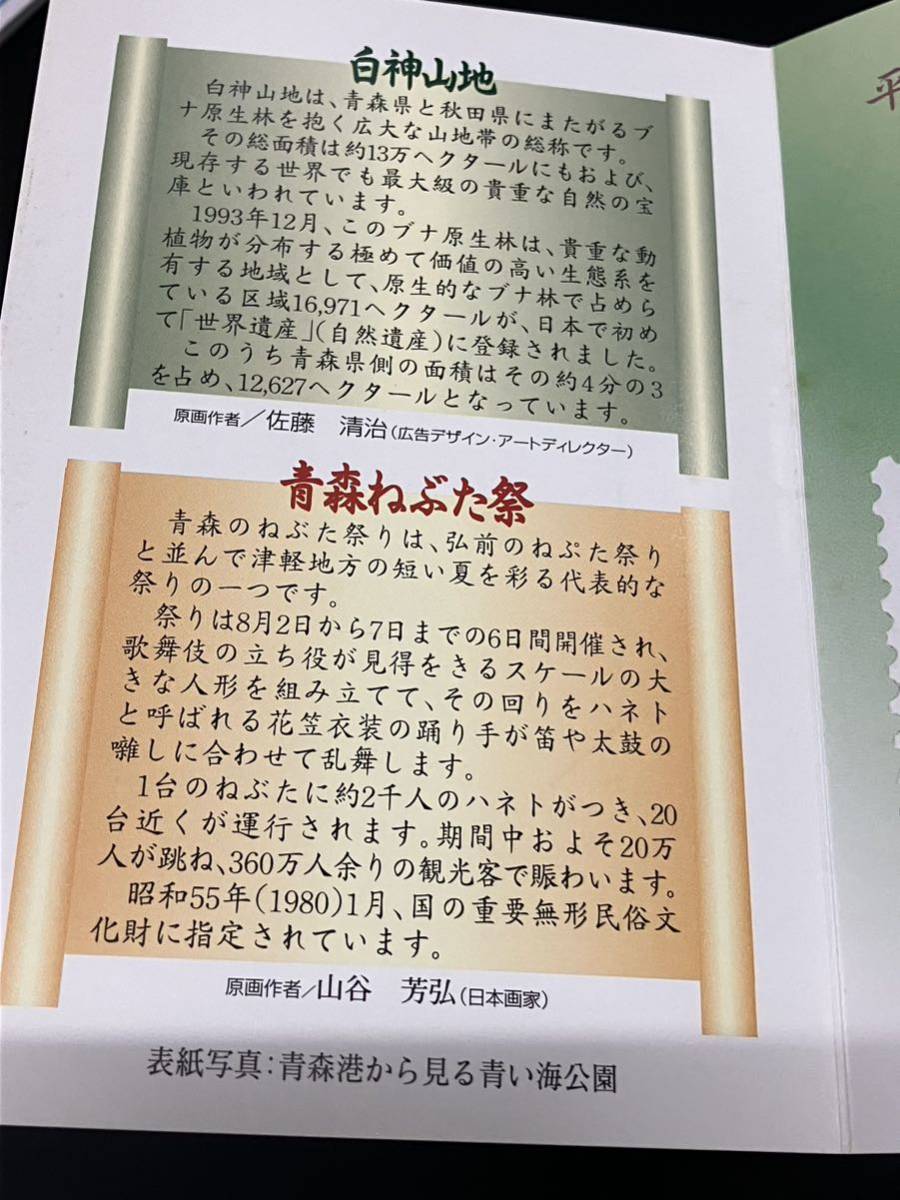 白神山地
白神山地は、青森県と秋田県にまたがるブ
ナ原生林を抱く広大な山地帯の総称です。
その総面積は約13万ヘクタールにもおよび、
現存する世界でも最大級の貴重な自然の宝
庫といわれています。
1993年12月、このブナ原生林は、貴重な動
植物が分布する極めて価値の高い生態系を
有する地域として、原生的なブナ林で占めら
ている区域16,971ヘクタールが、日本で初め
て「世界遺産」(自然遺産)に登録されました。
このうち青森県側の面積はその約4分の3
を占め、12,627ヘクタールとなっています。
原画作者/佐藤 清治(広告デザイン・アートディレクター)
青森ねぶた祭
青森のねぶた祭りは、弘前のねぷた祭り
と並んで津軽地方の短い夏を彩る代表的な
祭りの一つです。
祭りは8月2日から7日までの6日間開催され、
歌舞伎の立ち役が見得をきるスケールの大
きな人形を組み立てて、その回りをハネト
と呼ばれる花笠衣装の踊り手が笛や太鼓の
囃しに合わせて乱舞します。
1台のねぶたに約2千人のハネトがつき、20
台近くが運行されます。期間中およそ20万
人が跳ね、360万人余りの観光客で賑わいます。
昭和55年(1980)1月、国の重要無形民俗文
化財に指定されています。
原画作者/山谷 芳弘(日本画家)
表紙写真:青森港から見る青い海公園
平